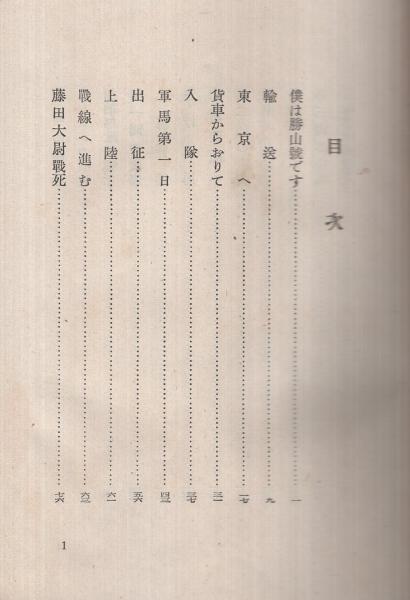 目次
僕は勝山號です……一
輸送……九
東京へ……一七
貨車からおりて……三一
入隊……三七
軍馬第一日……四三
出征……五六
上陸……六一
戰線へ進む……六三
藤田大尉戰死……七六
1